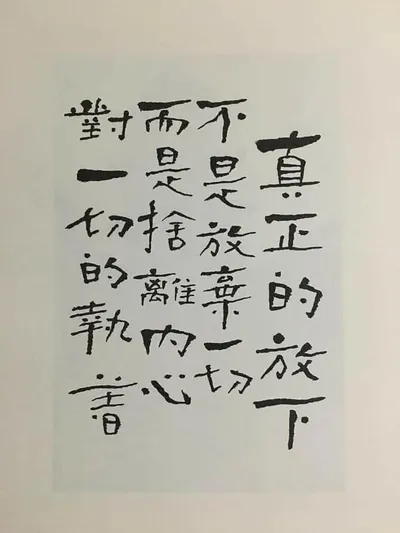 真正的放下
不是放棄一切
而是捨離內心
對一切的執著